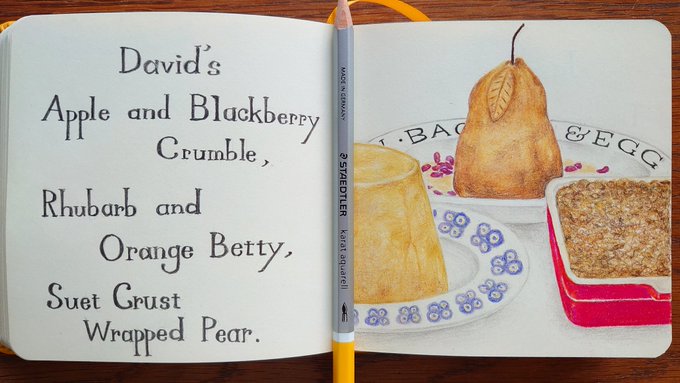 David's
Apple and Blackberry
Crumble,
Rhubarb and
Orange Betty,
Suet Crust
Wrapped Pear.
MADE IN GERMANY
STAEDTLER
karat aquarell
&EGG